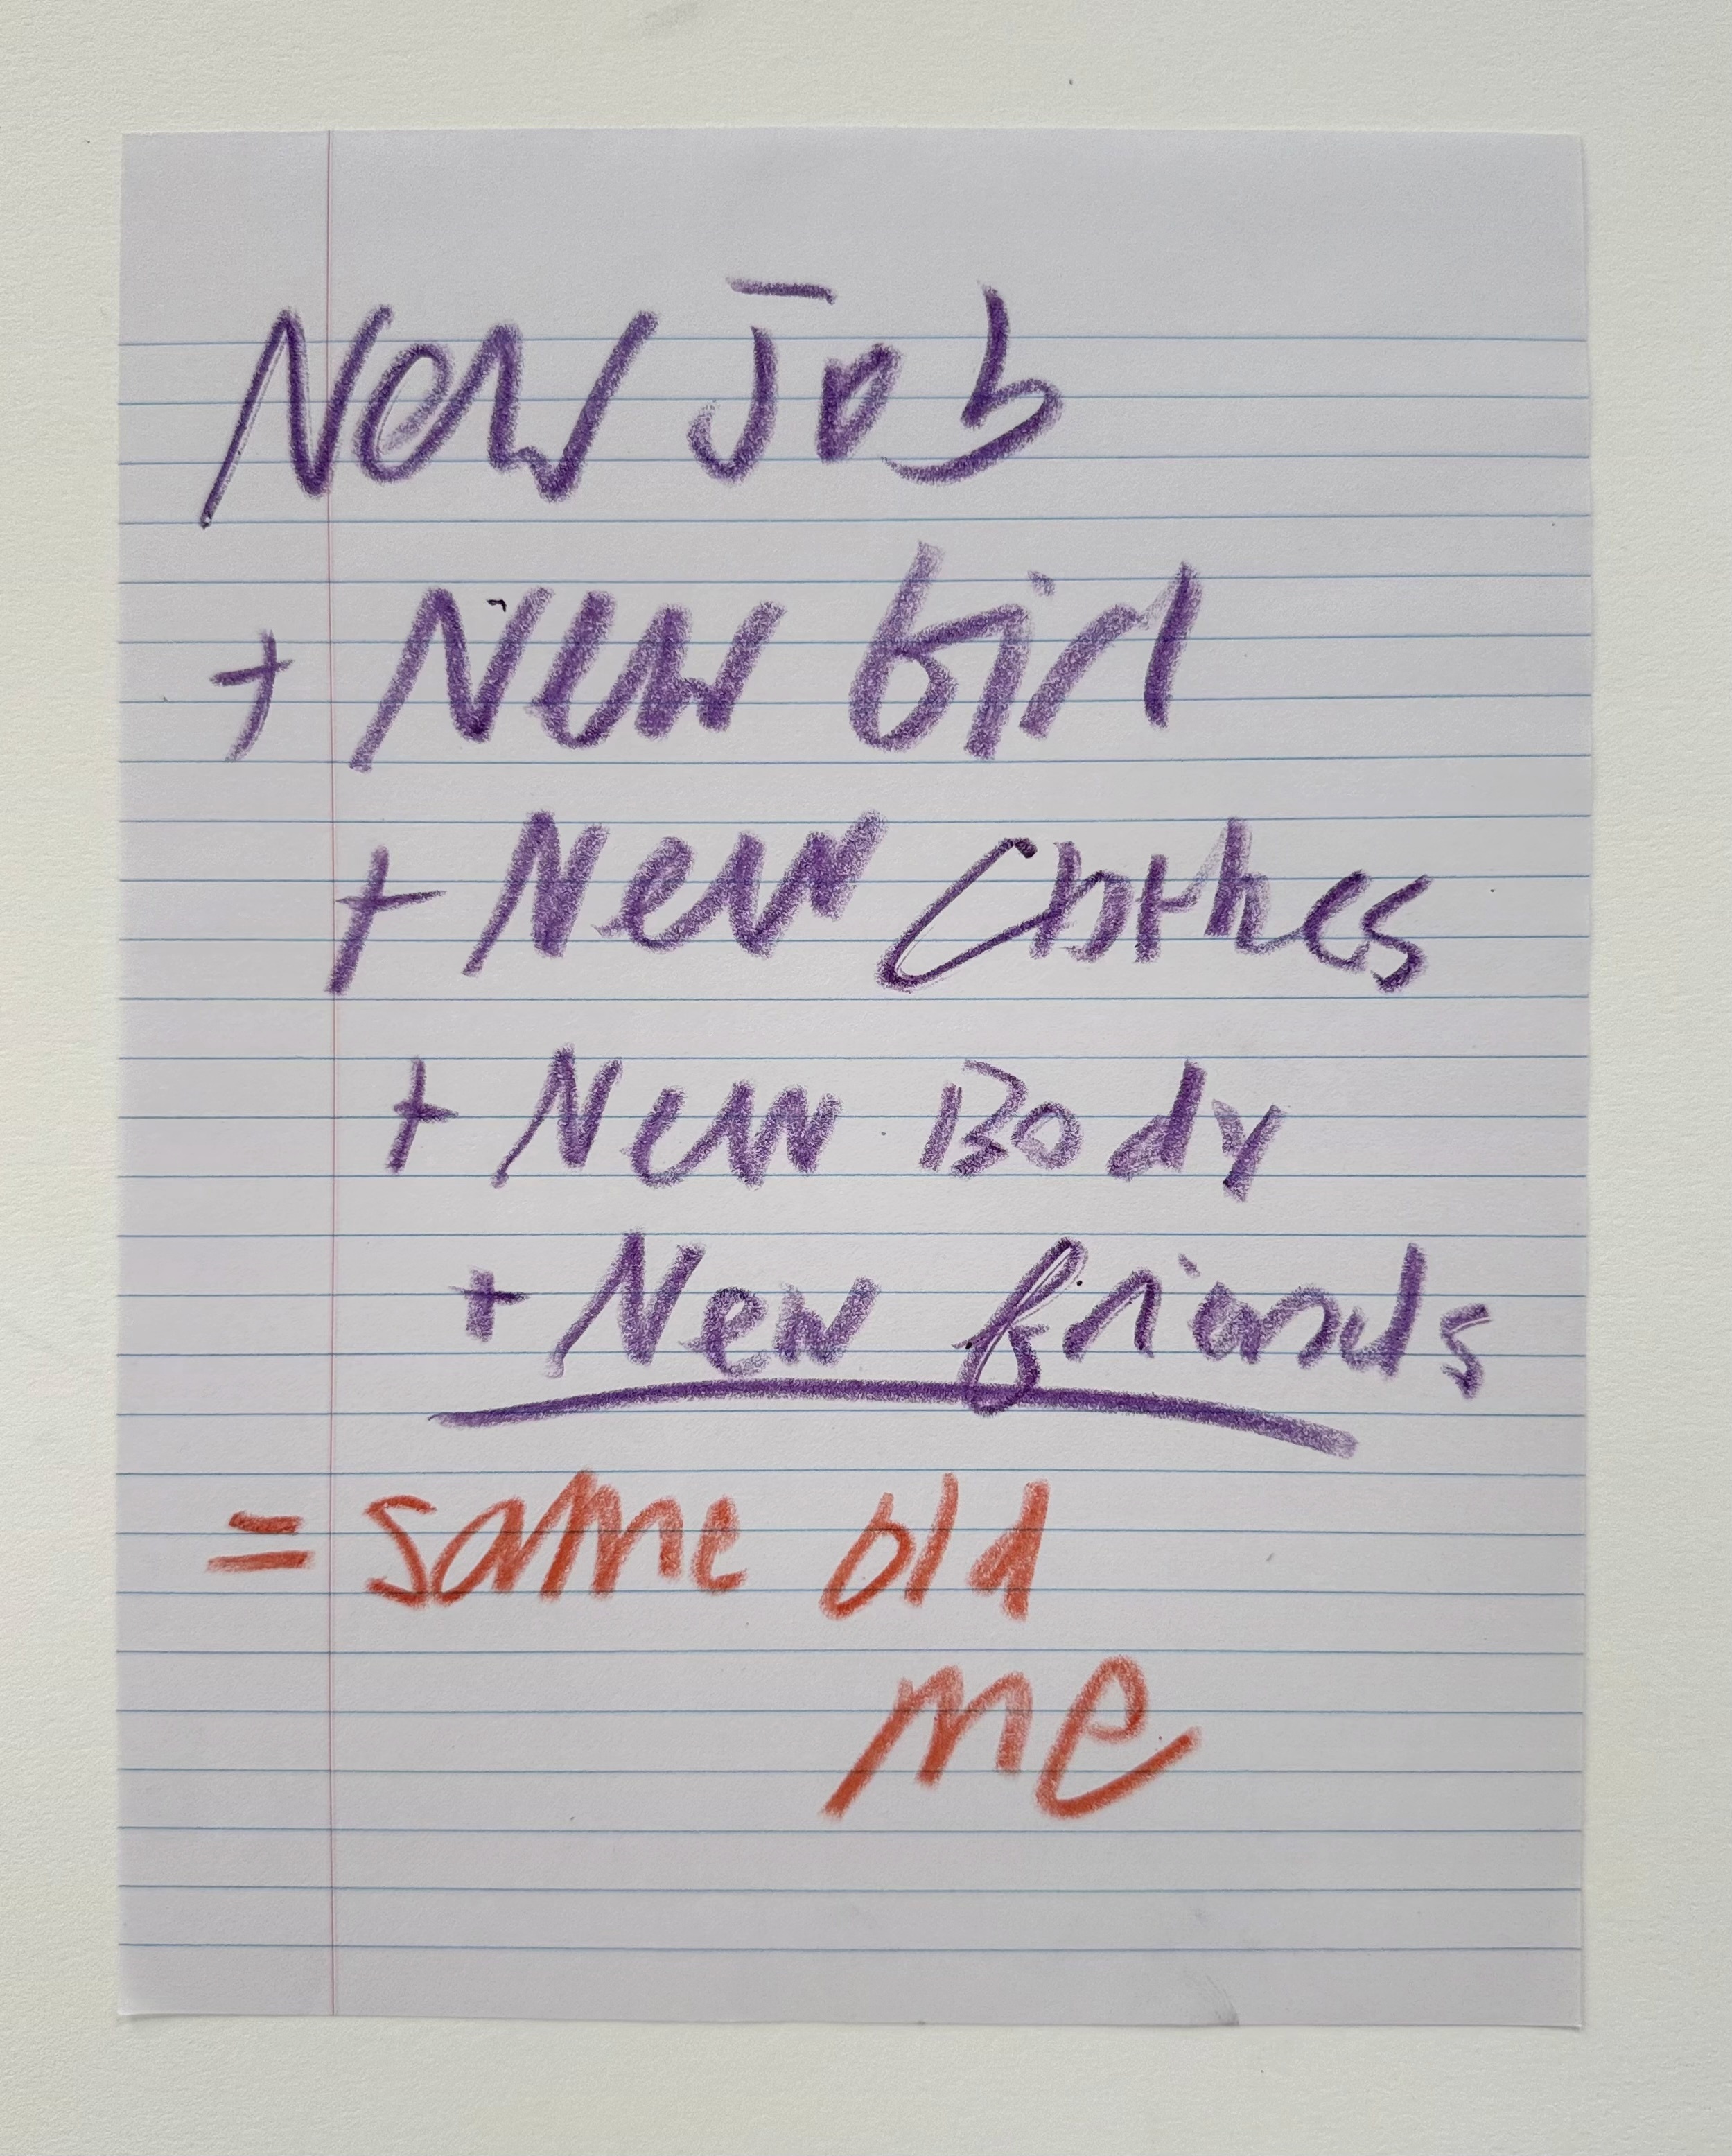 New Job
+ New Girl
+ New Clothes
+ New Body
+ New friends
= same old
me